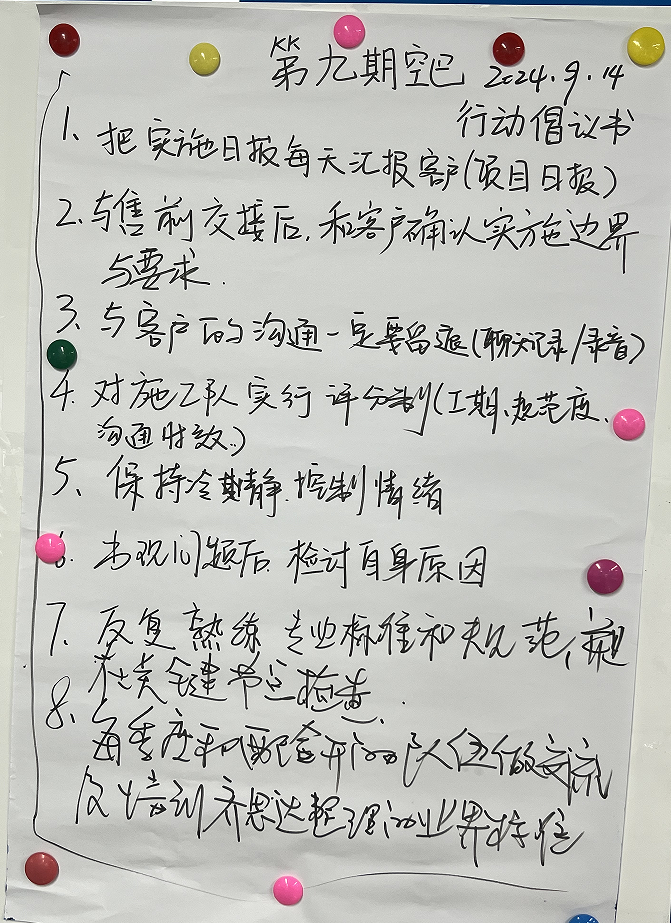 KK
第九期空巴 2024.9.14
行动倡议书
1、把实施日报每天汇报客户(项目日报)
2、与售前交接后,和客户确认实施边界
与要求.
3、与客户的沟通一定要留痕(聊天记录/录音)
4、对施工队实行评分制(工期、规范度、
沟通时效、)
5、保持冷静.控制情绪
6、出现问题后 检讨自身原因
7、反复熟练 专业标准和规范,
关键节点检查.
8、每季度和配合 队伍做交流
及 业界